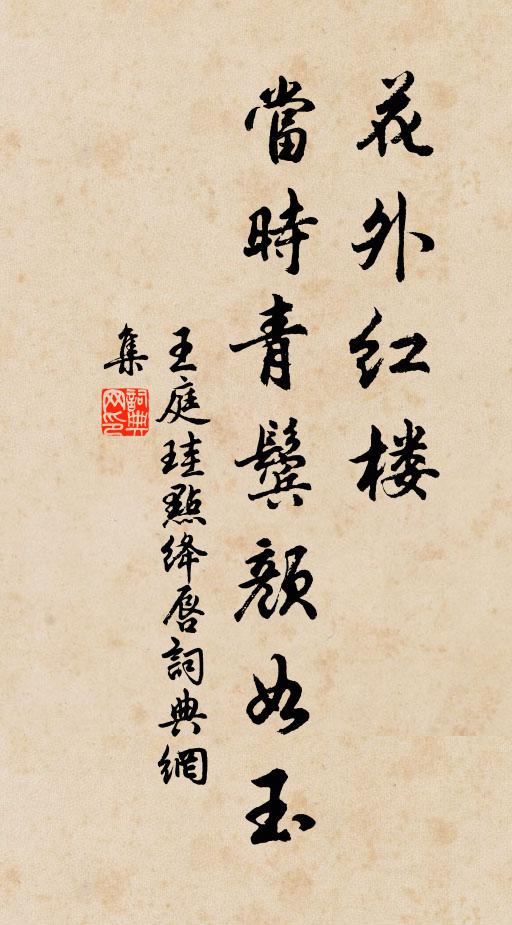 花外红楼
當時青鬢颜如玉
王庭珪點绛唇詞典網
集
詞典
网印